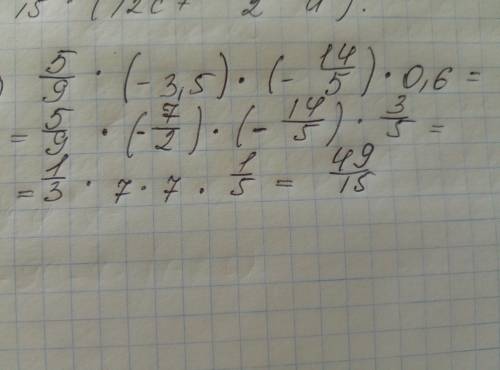 ) 5/9 · (- 3,5) · (- 14/5) · 0,6 =
= 5/9 · (- 7/2) · (- 14/5) · 3/5 =
= 1/3 · 7 · 7 · 1/5 = 49/15